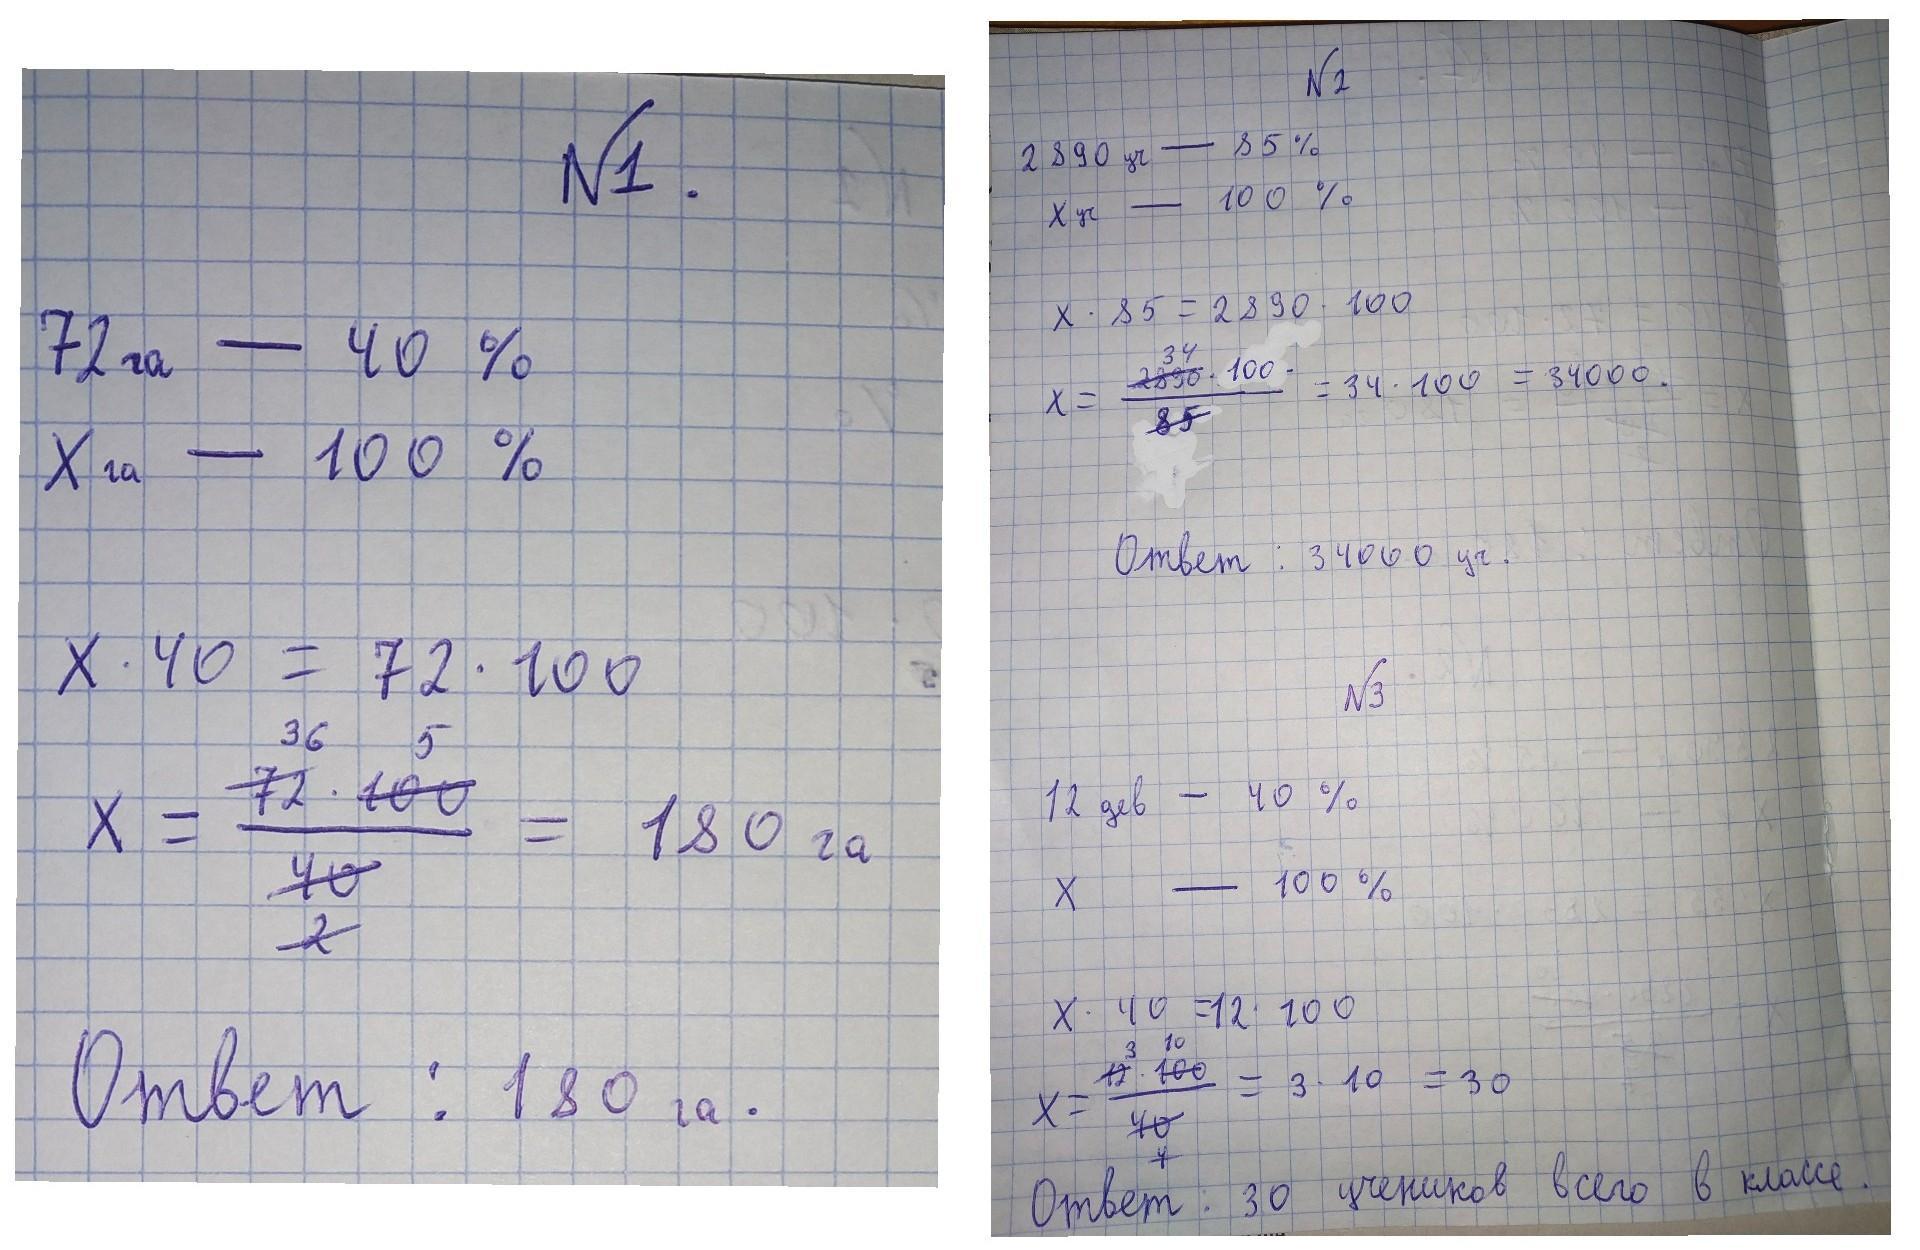 №1.
72 га — 40 %
X га — 100 %
X · 40 = 72 · 100
36 5
X = 72 · 100 / 40 = 180 га
2
Ответ : 180 га.
№2
2890 уч — 85 %
X уч — 100 %
X · 85 = 2890 · 100
34
X = 2890 · 100 / 85 = 34 · 100 = 34000.
Ответ : 34000 уч.
№3
12 дев — 40 %
X — 100 %
X · 40 = 12 · 100
3 10
X = 12 · 100 / 40 = 3 · 10 = 30
4
Ответ : 30 учеников всего в классе.